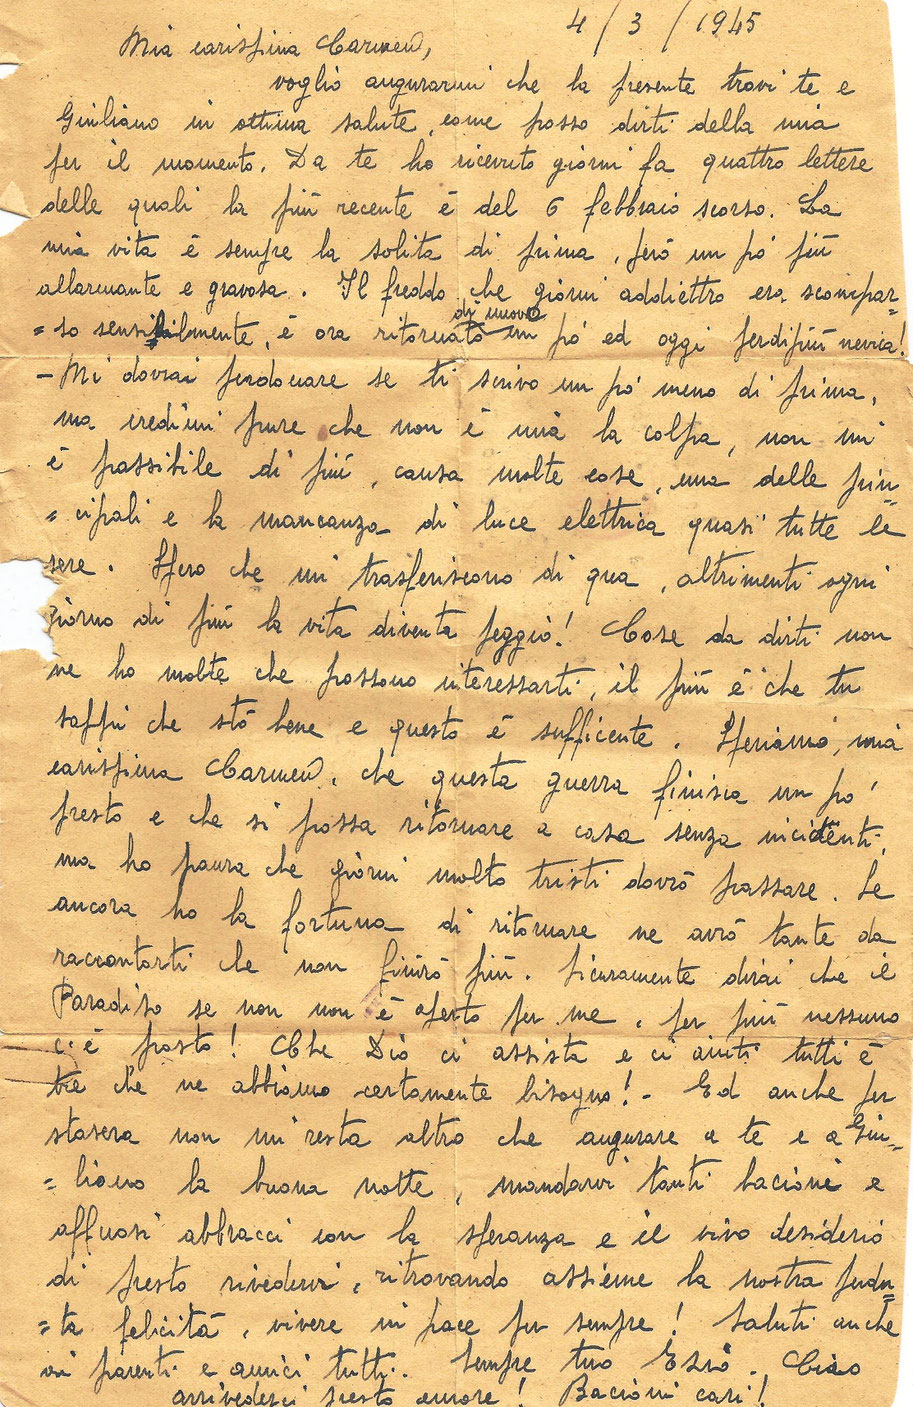 4/3/1945
Mia carissima Carmen,
voglio augurarmi che la presente trovi te e
Giuliano in ottima salute, come posso dirti della mia
per il momento. Da te ho ricevuto giorni fa quattro lettere
delle quali la più recente è del 6 febbraio scorso. La
mia vita è sempre la solita di prima, però un pò più
allarmante e gravosa. Il freddo che giorni addiettro era scompar-
=so sensibilmente, è ora ritornato di nuovo un pò ed oggi perdipiù nevica!
- Mi dovrai perdonare se ti scrivo un pò meno di prima,
ma credimi pure che non è mia la colpa, non mi
è possibile di più, causa molte cose, una delle prin=
=cipali e la mancanza di luce elettrica quasi tutte le
sere. Spero che mi trasferiscono di qua, altrimenti ogni
giorno di più la vita diventa peggio! Cose da dirti non
ne ho molte che possono interessarti, il più è che tu
sappi che stò bene e questo è sufficente. Speriamo, mia
carissima Carmen, che questa guerra finisca un pò
presto e che si possa ritornare a casa senza incidenti,
ma ho paura che giorni molto tristi dovrò passare. Se
ancora ho la fortuna di ritornare ne avrò tante da
raccontarti che non finirò più. Sicuramente dirai che il
Paradiso se non non è aperto per me, per più nessuno
ci è posto! Che Dio ci assista e ci aiuti tutti è
tre chè ne abbiamo certamente bisogno! - Ed anche per
stasera non mi resta altro che augurare a te e a Giu=
=liano la buona notte, mandarvi tanti bacioni e
affuosi abbracci con la speranza e il vivo desiderio
di presto rivedervi, ritrovando assieme la nostra perdu=
=ta felicità, vivere in pace per sempre! Saluti anche
ai parenti e amici tutti. Sempre tuo Ezio. Ciao
arrivederci presto amore! Bacioni cari!